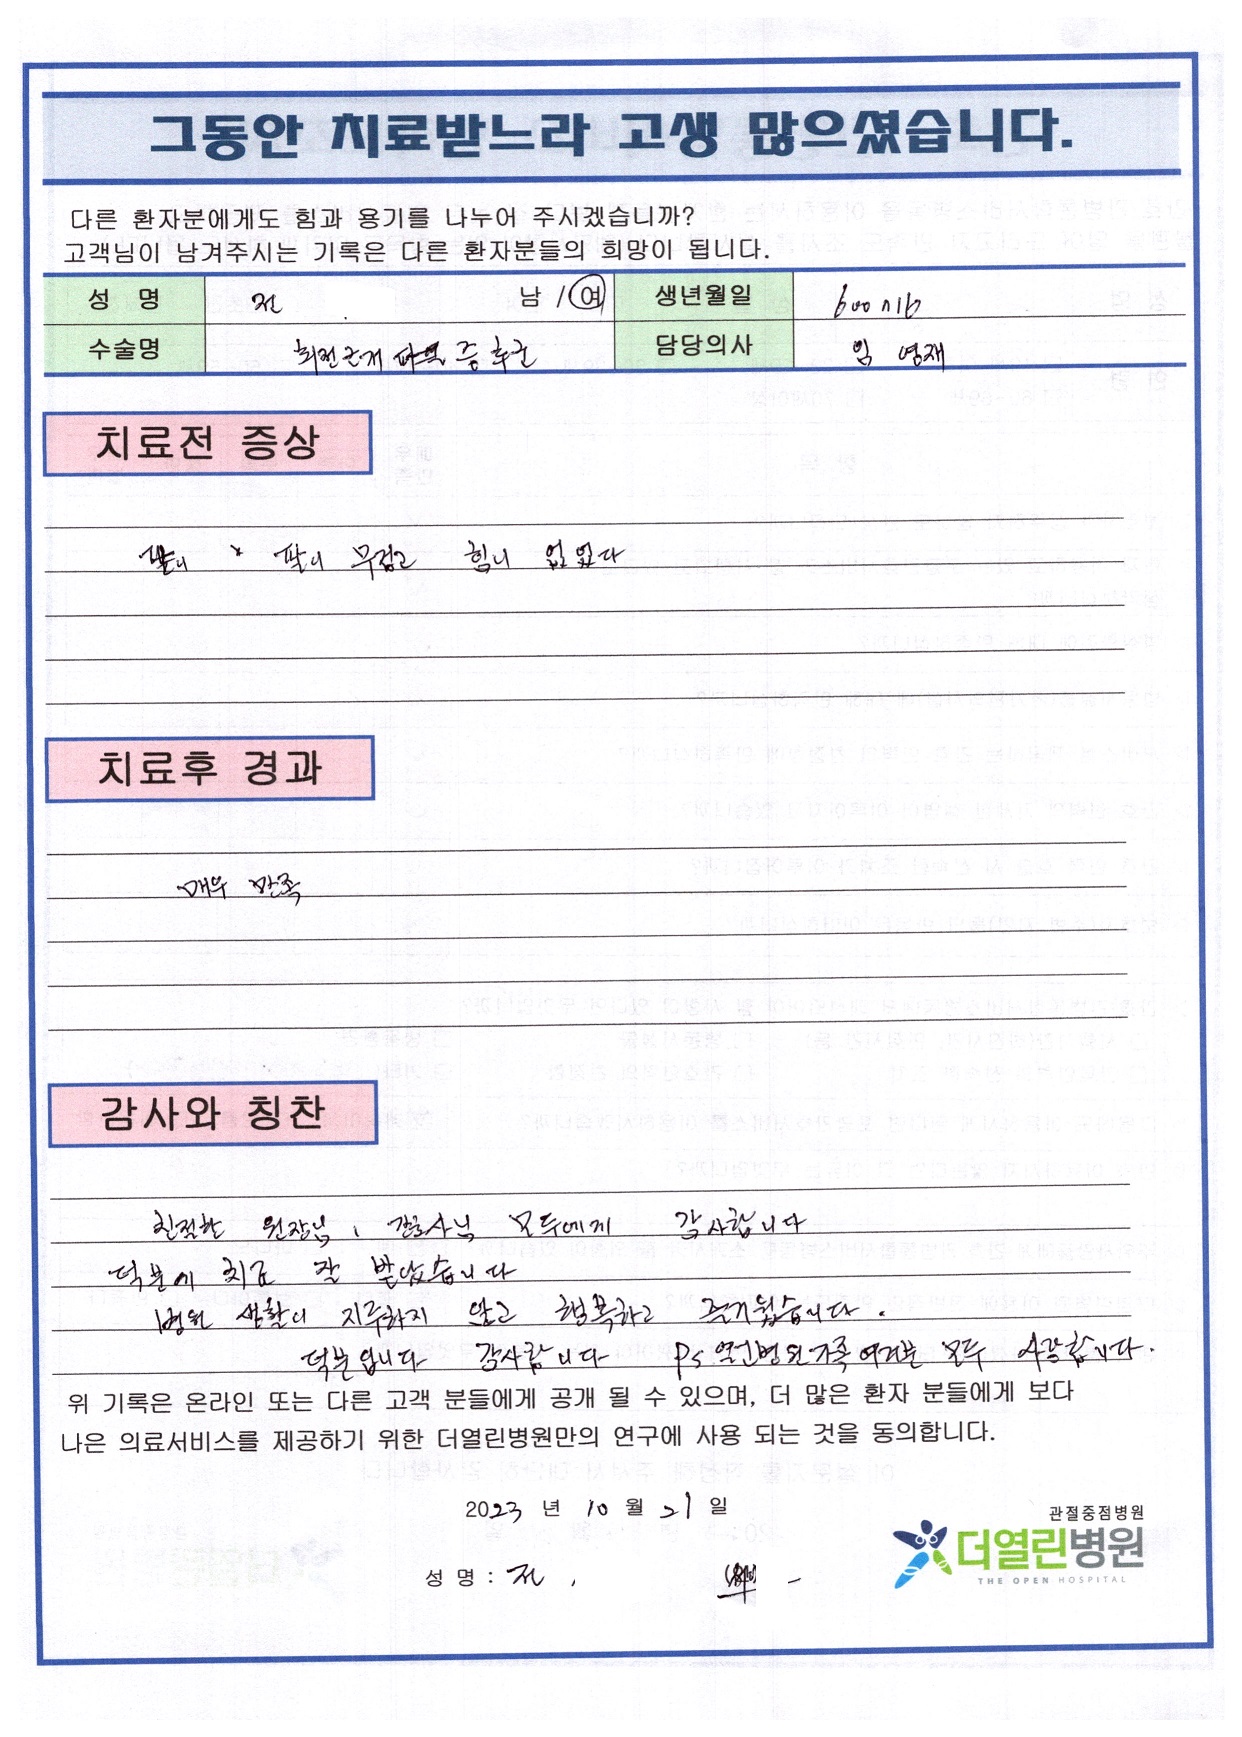 그동안 치료받느라 고생 많으셨습니다.
다른 환자분에게도 힘과 용기를 나누어 주시겠습니까?
고객님이 남겨주시는 기록은 다른 환자분들의 희망이 됩니다.
성 명 전 남 / 여 생년월일
수술명 회전근개 파열 증후군 담당의사 임 영재
치료전 증상
팔이 무겁고 힘이 없었다
치료후 경과
매우 만족
감사와 칭찬
친절한 원장님, 간호사님 모두에게 감사합니다
덕분에 치료 잘 받았습니다
병원 생활이 지루하지 않고 행복하고 즐거웠습니다.
덕분입니다 감사합니다 Ps 열린병원가족 여러분 모두 사랑합니다.
위 기록은 온라인 또는 다른 고객 분들에게 공개 될 수 있으며, 더 많은 환자 분들에게 보다
나은 의료서비스를 제공하기 위한 더열린병원만의 연구에 사용 되는 것을 동의합니다.
2023 년 10 월 21 일
관절중점병원
더열린병원
THE OPEN HOSPITAL
성 명 : 전